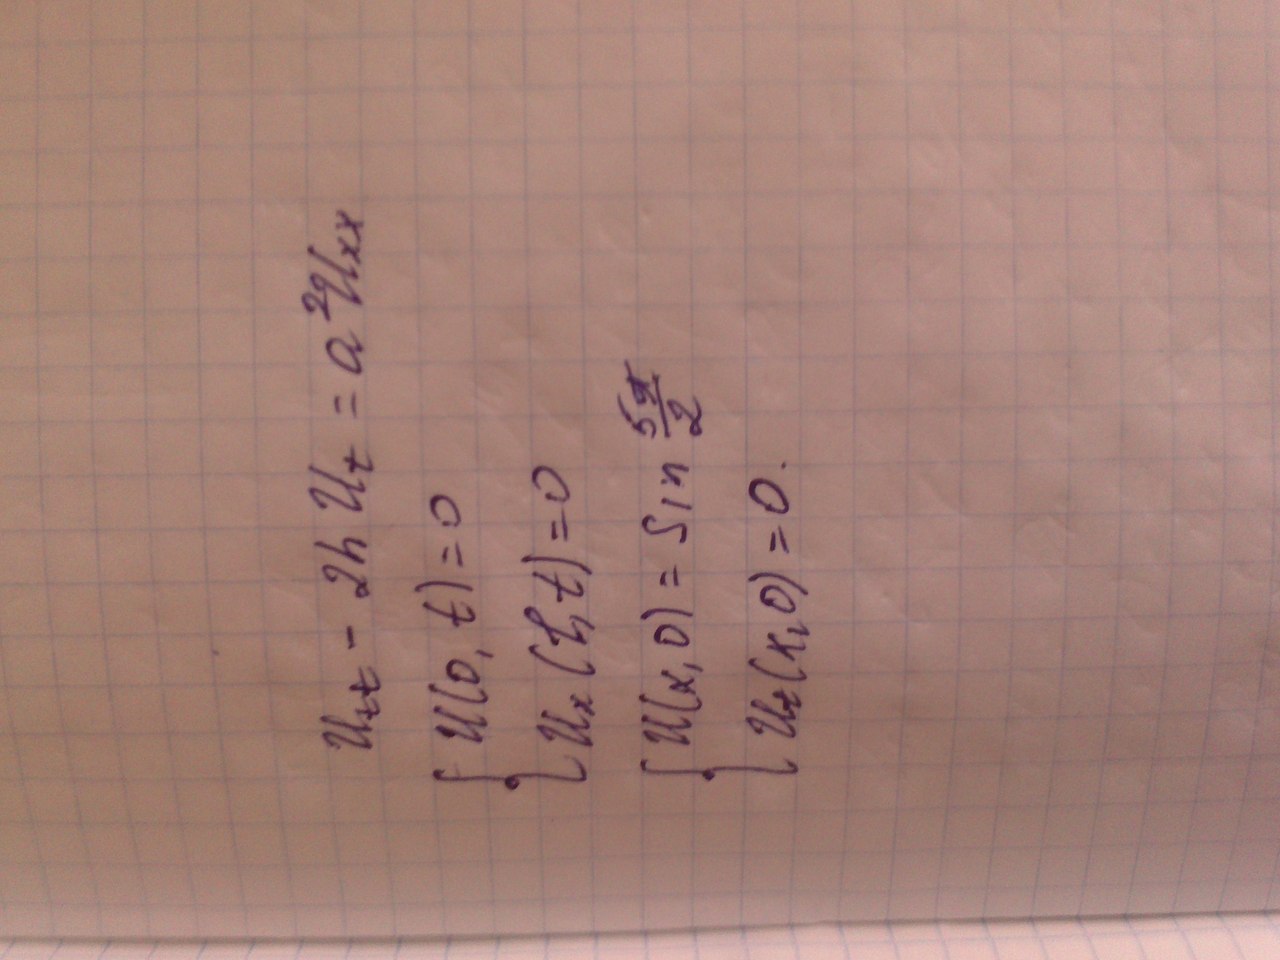 U_tt - 2h U_t = a²U_xx
{ U(0, t) = 0
U_x(ℓ, t) = 0
{ U(x, 0) = sin 5π/2
U_t(x, 0) = 0.